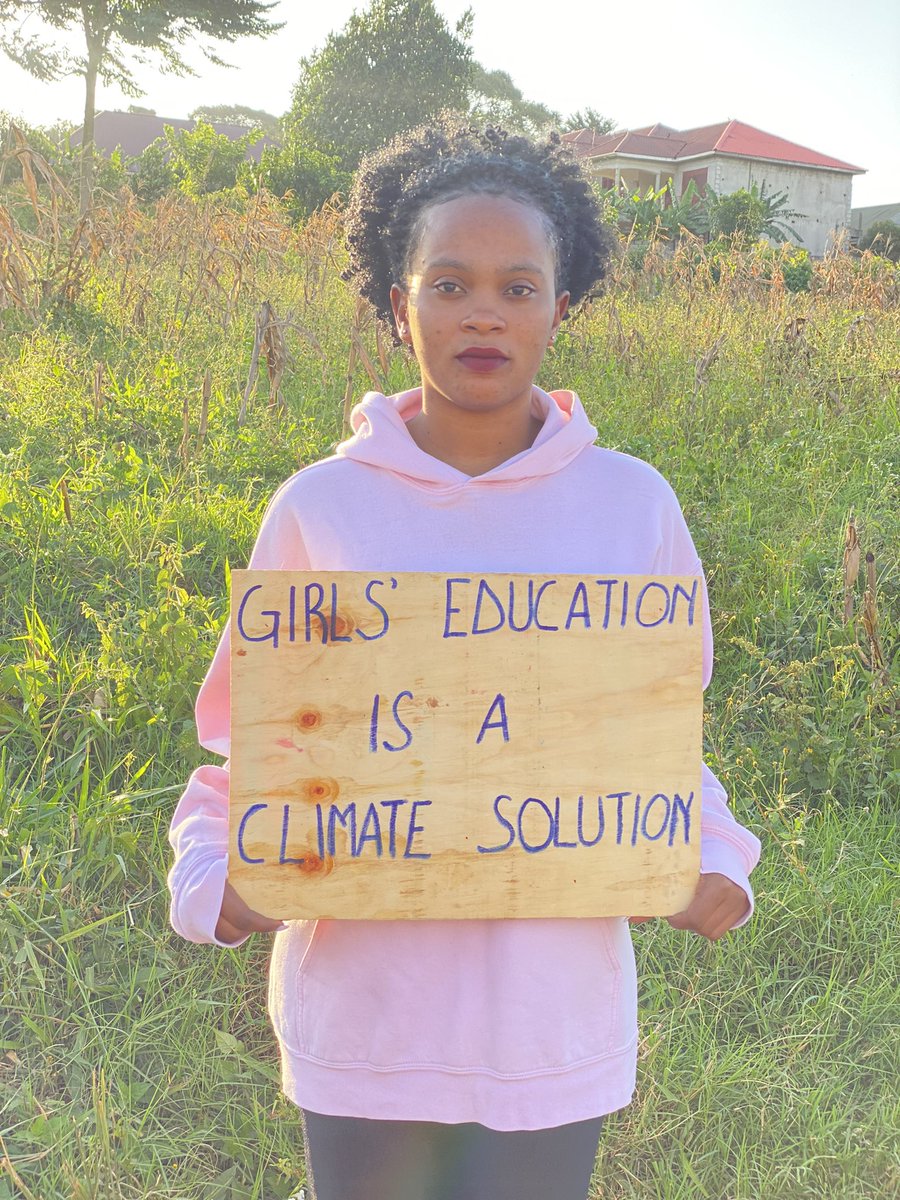 GIRLS' EDUCATION
IS A
CLIMATE SOLUTION